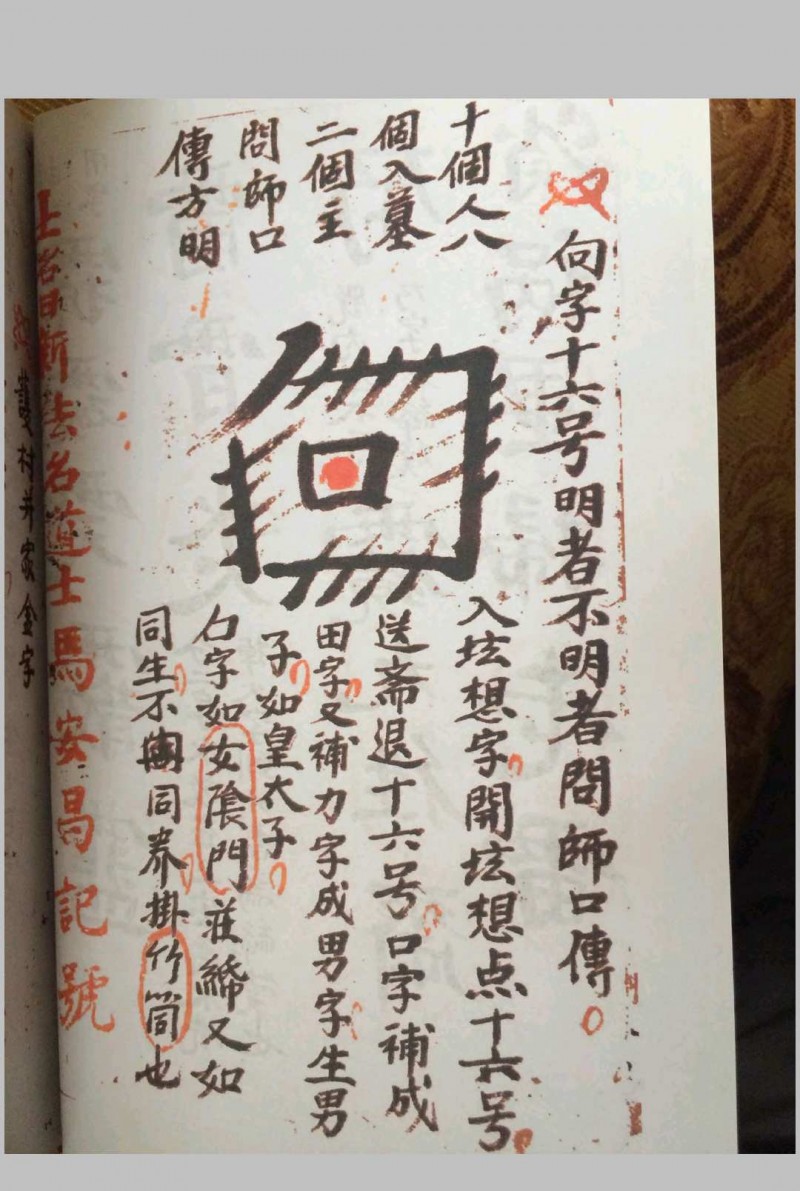 向字十六号明者不明者問師口傳
十個人八
個入墓
二個主
問師口
傳方明
入坛想字開坛想点十六号
送斋退十六号口字補成
田字又補力字成男字生男
子如皇太子
字如女陰門莊締又如
同生不同养掛竹筒也
法名道士馬安昌記號
護村并家金字